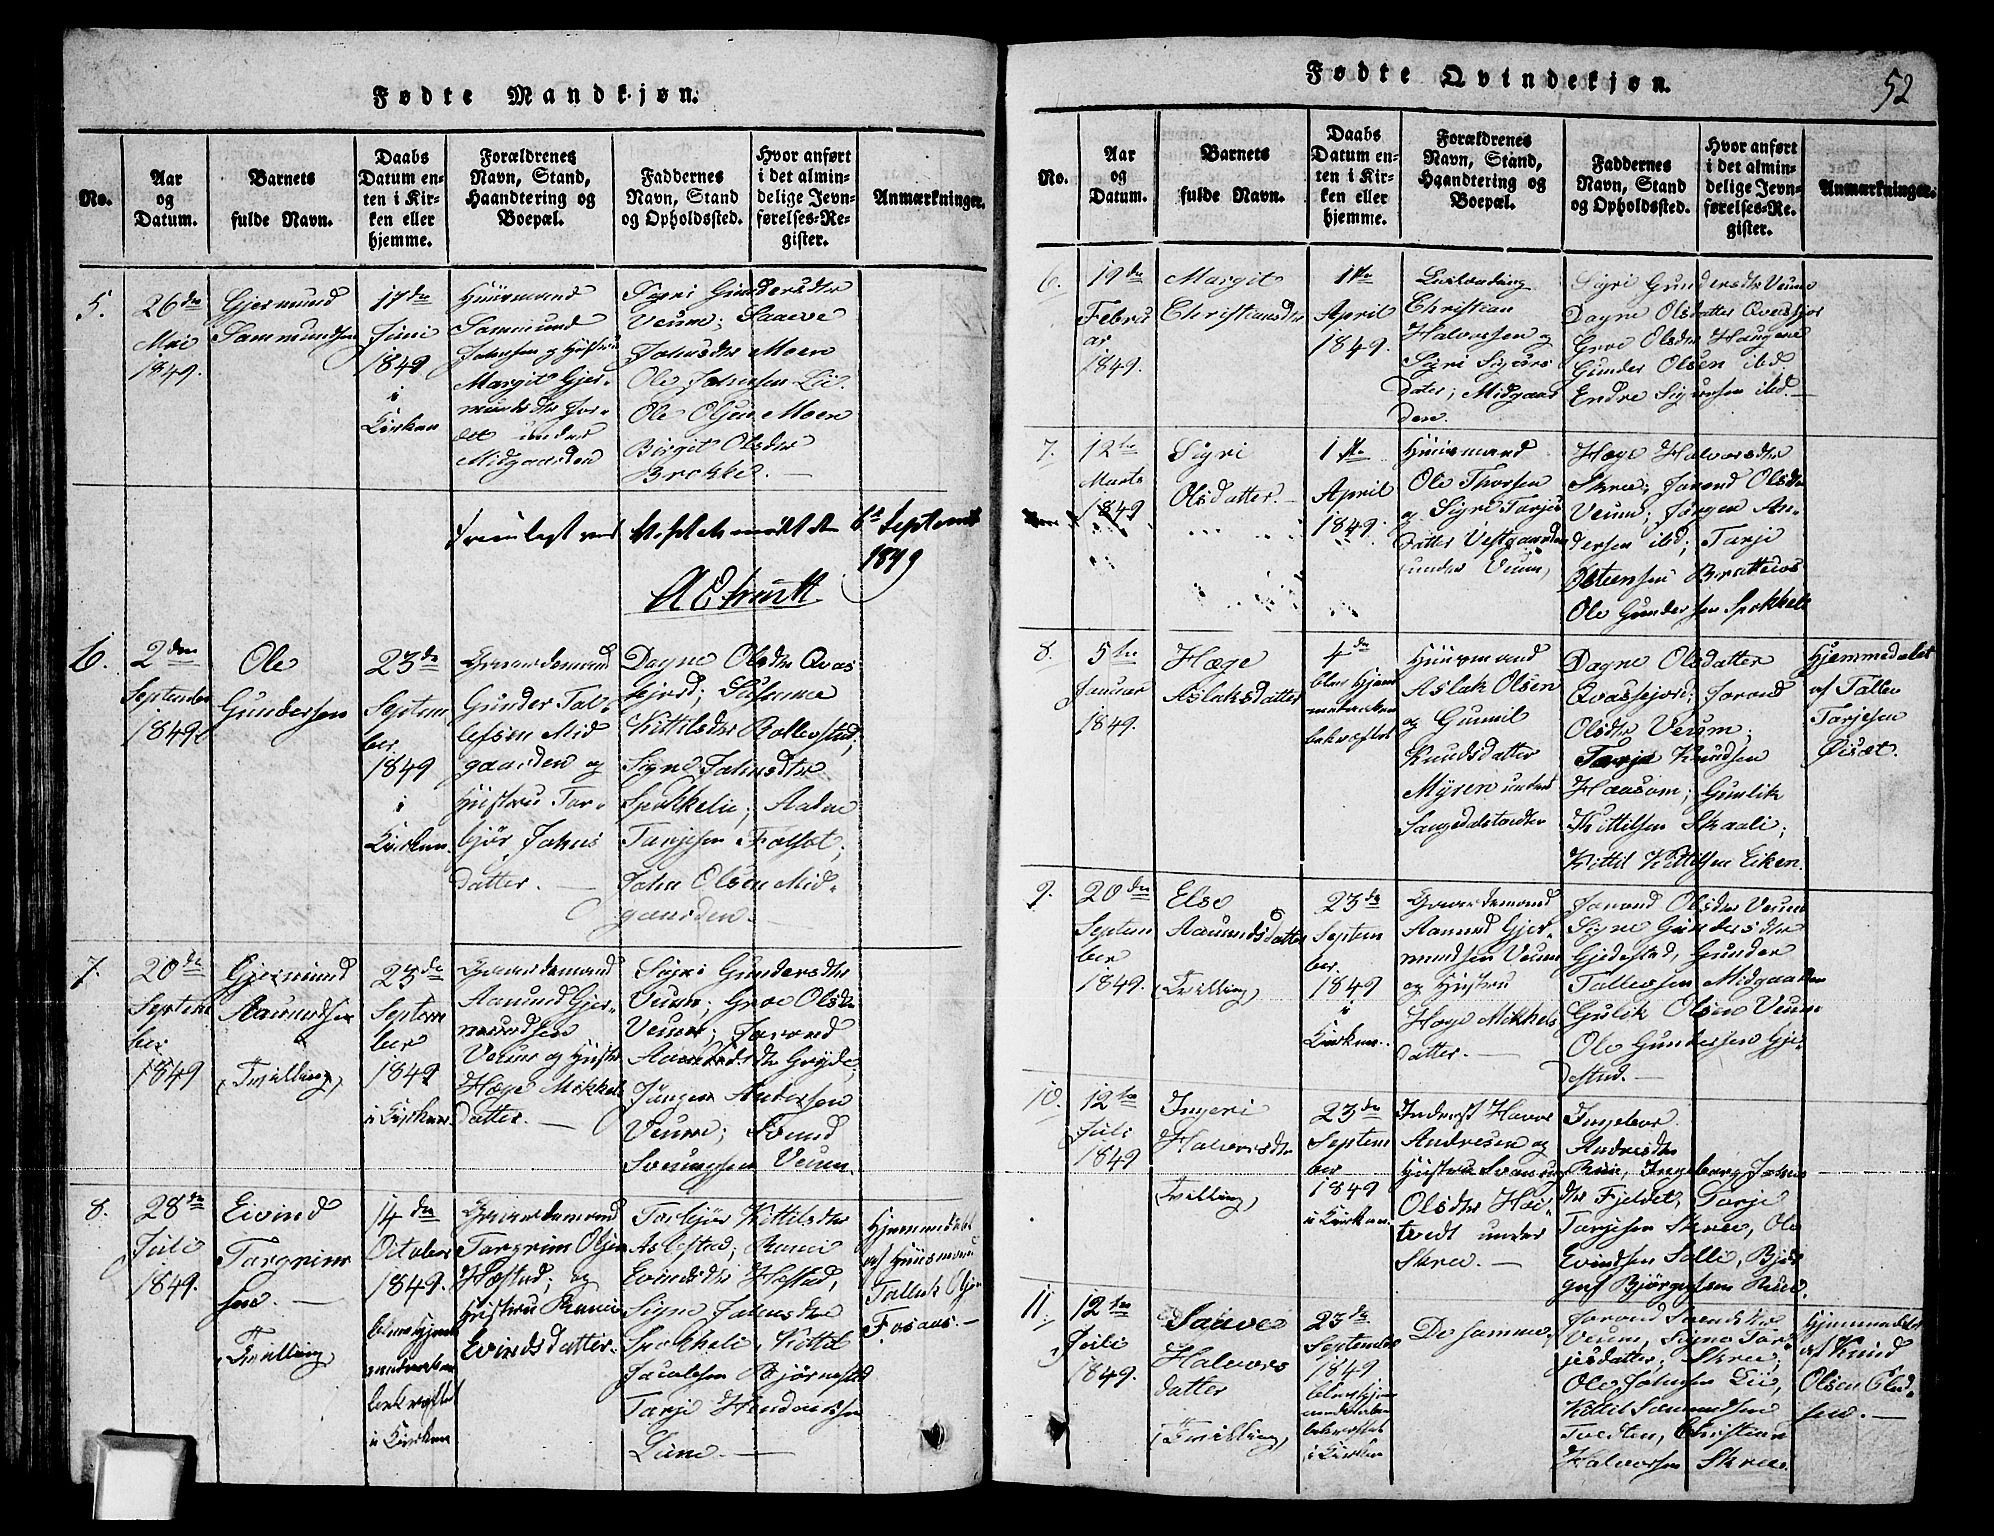 Fødte Mandkjøn.
No.
Aar
og
Datum.
Barnets
fulde Navn.
Daabs
Datum en-
ten i Kir-
ken eller
hjemme.
Forældrenes
Navn, Stand,
Haandtering og
Boepæl.
Faddernes
Navn, Stand
og Opholdssted.
Hvor anført
i det almin-
delige Jevn-
førelses-Re-
gister.
Anmærkninger.
5.
26de
Mai
1849.
Gjermund
Sammundsen
17de
Juni
1849
i
Kirken
Huusmand
Sammund
Johnsen og Hustru
Margit Gjer-
mundsdtr Jor-
det under
Midgaarden
Sigri Gundersdtr
Veum; Saave
Johnsdtr Moen
Ole Johnsen Lii.
Ole Olsen Moen
Birgit Olsdtr
Brokke.
Fremlagt ved Visitatsmødet den 6te Septemb
1849
6.
2den
September
1849.
Ole
Gundersen
23de
Septem
ber
1849
i
Kirken
Gaardemand
Gunder Tal-
lefsen Mid
gaarden og
Hustru Tor-
bjør Johns
datter.
Dagne Olsdtr Qvas
fjord; Susanne
Kittilsdtr Bollevstad;
Signe Johnsdtr
Spokkelie; Aadne
Tarjesen Folsot;
John Olsen Mid-
gaarden.
7.
20de
Septem
ber
1849
Gjermund
Aamundsen
(Tvilling)
23de
Septem
ber
1849
i Kirken
Gaardemand
Aamund Gjer-
mundsen
Veum og Hustru
Hæge Mikkels
datter.
Sigri Gundersdtr
Veum; Groe Olsdtr
Veum; Jorond
Aamundsdtr Gryde;
Jørgen Andersen
Veum; Svend
Sveinungsen Veum.
8.
28de
Juli
1849.
Eivind
Targrim
sen.
(Tvilling)
14de
October
1849.
blev hjem
medaaben
bekræftet
i Kirken
Gaardemand
Targrim Olsen
Hæstad; og
Hustru Ranei
Evindsdatter.
Torbjør Kittilsdtr
Aslestad; Ranei
Evindsdtr Hæstad,
Signe Johnsdtr
Spokkeli, Kittil
Jacobsen Bjørnestad
Tarje Hendriksen
Lune.
Hjemmedøbt
af Huusmand
Tallak Olsen
Fosaas.
Fødte Qvindekjøn.
52
No.
Aar
og
Datum.
Barnets
fulde Navn.
Daabs
Datum en-
ten i Kir-
ken eller
hjemme.
Forældrenes
Navn, Stand,
Haandtering og
Boepæl.
Faddernes
Navn, Stand
og Opholdssted.
Hvor anført
i det almin-
delige Jevn-
førelses-Re-
gister.
Anmærkninger.
6.
19de
Febru
ar
1849.
Margit
Christiansdtr
1ste
April
1849.
Christian
Halvorsen og
Sigri Sigurs
dater; Midgaar
den.
Sigri Gundersdtr Veum
Dagne Olsdatter Qvasfjor
Groe Olsdtr Haugene
Gunder Olsen ibd.
Endre Sigursen ibd.
7.
12te
Marts
1849.
Sigri
Olsdatter.
1ste
April
1849.
Huusmand
Ole Thorsen
og Sigri Tarjes
datter Vestgaarden
under Veum,
Hæge Halvorsdtr
Skree; Jorond Olsdtr
Veum; Jørgen An-
dersen ibd; Tarje
Østensen Brattevos
Ole Gundersen Spokkeli
8.
5te
Januar
1849.
Hæge
Aslaksdatter
4de
blev hjem
medaaben
bekræftet
Huusmand
Aslak Olsen
og Gunvil
Knudsdatter
Myren under
Dagne Olsdatter
Qvassfjord; Jorond
Olsdtr Veum;
Tarje Knudsen
Haasom; Gunlik
Kittilsen Skaali;
Kittil Kittilsen Eiken.
Hjemmedøbt
af Tallev
Tarjesen
Øisæt.
9.
20de
Septem
ber
1849.
Else
Aamundsdatter
(Tvilling)
23de
Septem
ber.
1849
i
Kirken.
Gaardemand
Aamund Gjer-
mundsen Veum
og Hustru
Hæge Mikkels
datter.
Jorond Olsdtr Veum
Signe Gundersdtr
Gjedestad, Gunder
Tallevsen Midgaarden
Gulik Olsen Veum
Ole Gundersen Gje-
destad.
10.
12te
Juli
1849
Ingeri
Halvorsdtr
(Tvilling)
23de
Septem
ber
1849
i Kirken.
Inderst Havor
Andresen og
Hustru Svanaug
Olsdtr Høi-
tvedt under
Skree.
Ingebor
Andresdtr
Rue, Ingeborg Johns
dtr Fjeldet, Tarje
Tarjesen Skree, Ole
Evindsen Solli, Bjør
guf Bjørgufsen Rue.
11.
12te
Juli
1849.
Saave
Halvors
datter
(Tvilling)
23de
September
1849
blev hjem
medaaben
bekræftet
i Kirken
De samme,
Jorond Svendsdtr
Veum, Signe Tar-
jesdatter, Skree;
Ole Johnsen Lii,
Kittil Sammundsen
Tvedten, Christian
Halvorsen Skree.
Hjemmedøbt
af Knud
Olsen